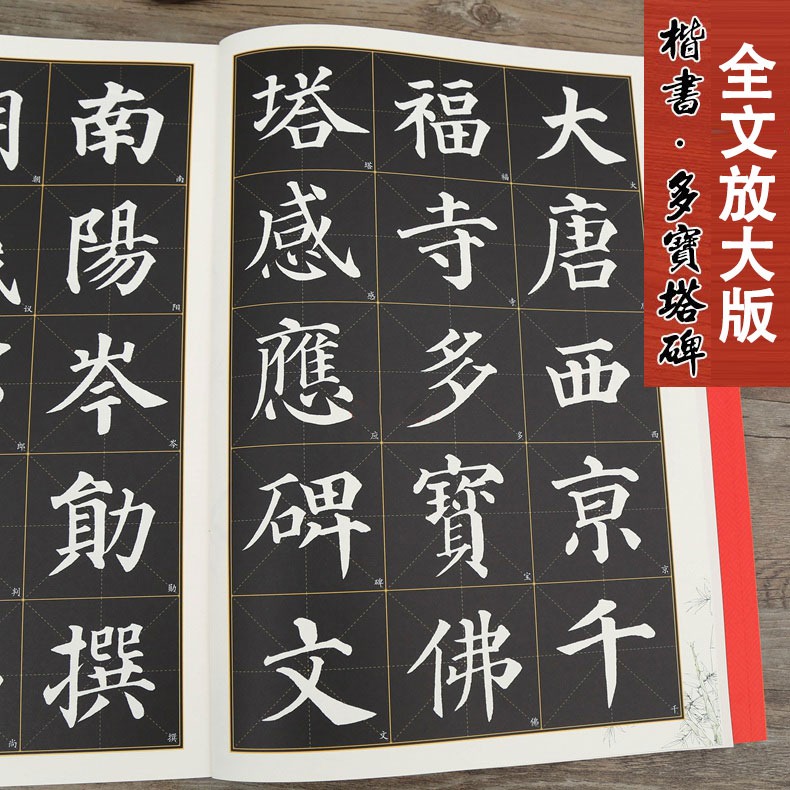 全文放大版
楷書·多寶塔碑
大唐西亰千
大西京千
福寺多寶佛
福寺多宝佛
塔感應碑文
塔感应碑文
南陽岑勛撰
南阳岑勋撰
朝议郎判尚